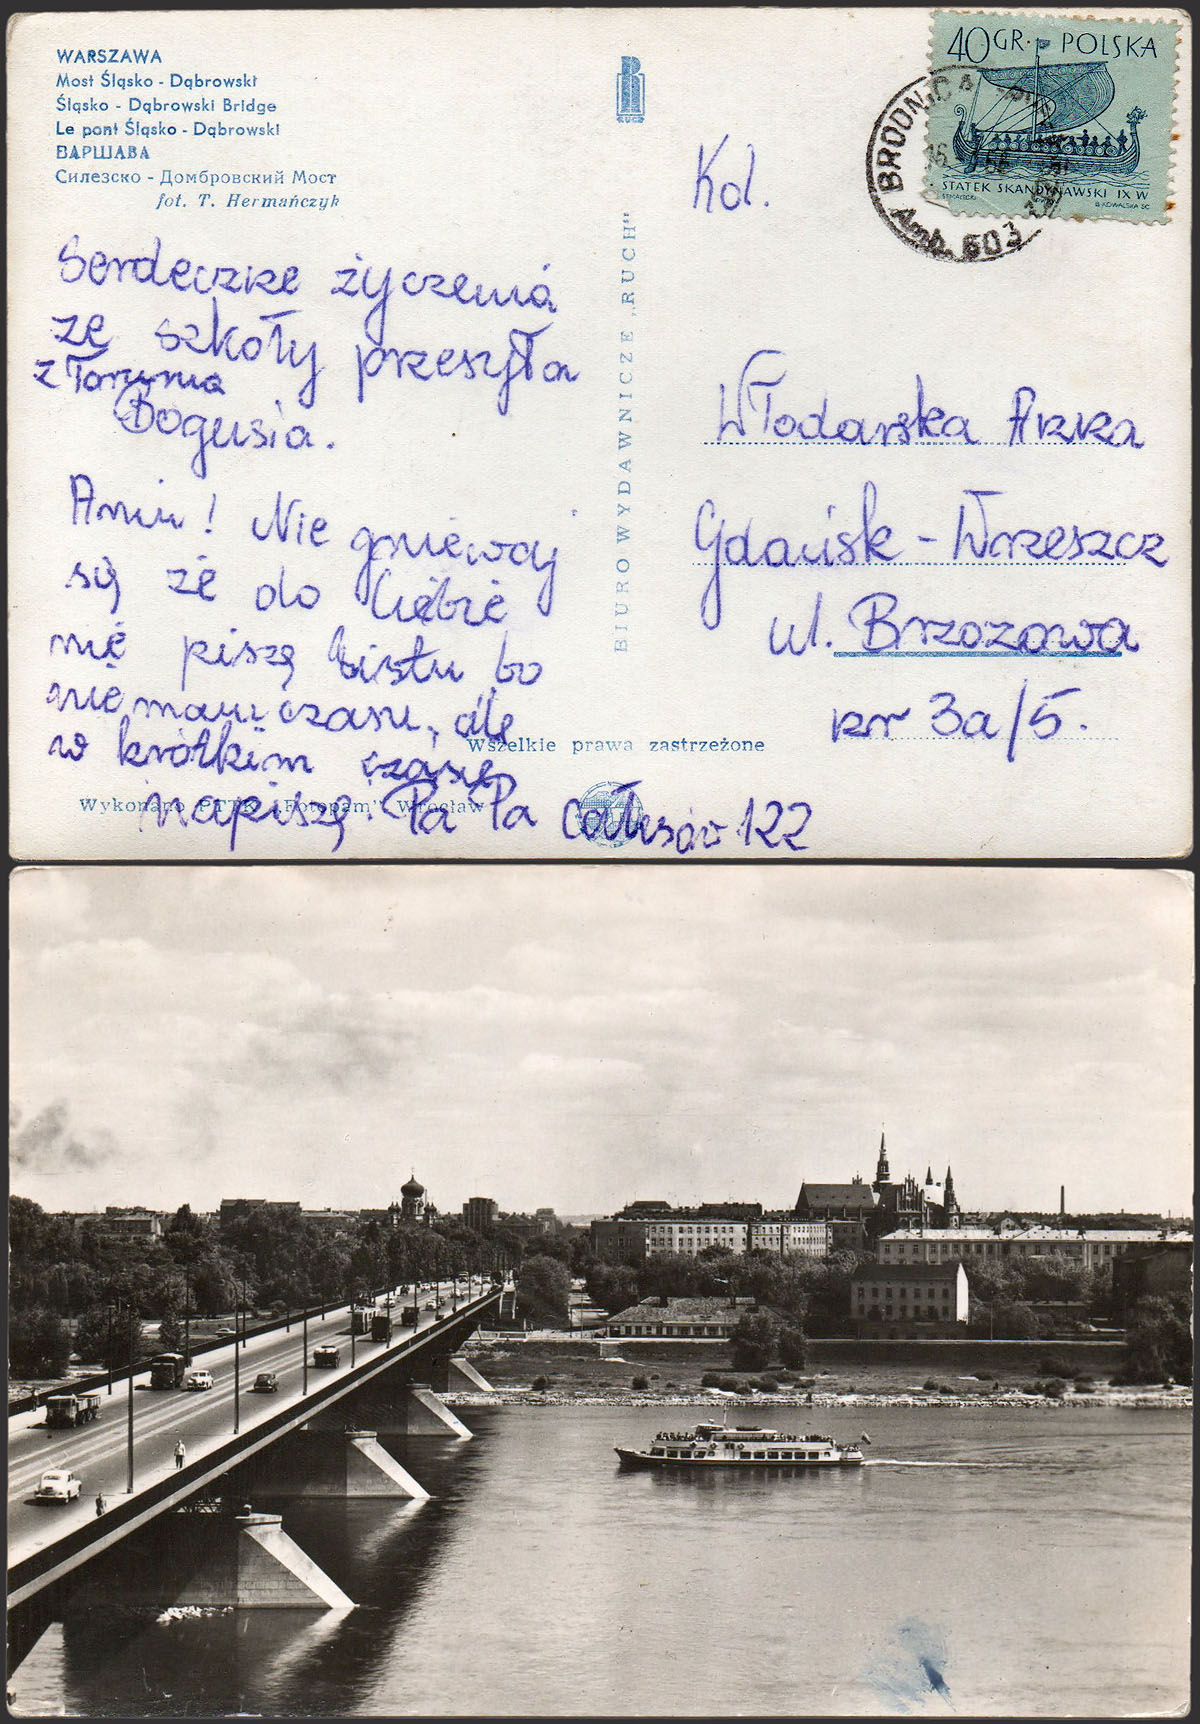 WARSZAWA
Most Śląsko - Dąbrowski
Śląsko - Dąbrowski Bridge
Le pont Śląsko - Dąbrowski
ВАРШАВА
Силезско - Домбровский Мост
fot. T. Hermańczyk
Serdeczne życzenia
ze szkoły przesyła
z Torunia
Bogusia.
Aniu! Nie gniewaj
się że do Ciebie
nie piszę listu bo
nie mam czasu, ale
w krótkim czasie
napiszę. Pa Pa całusów 122
Wszelkie prawa zastrzeżone
Wykonano PTTK „Fotopam" Wrocław
BIURO WYDAWNICZE „RUCH"
R
RUCH
40 GR. POLSKA
STATEK SKANDYNAWSKI IX W
B. KOWALSKA SC.
BRODNICA
Amb. 603
Kol.
Włodarska Anna
Gdańsk - Wrzeszcz
ul. Brzozowa
nr 3a/5.